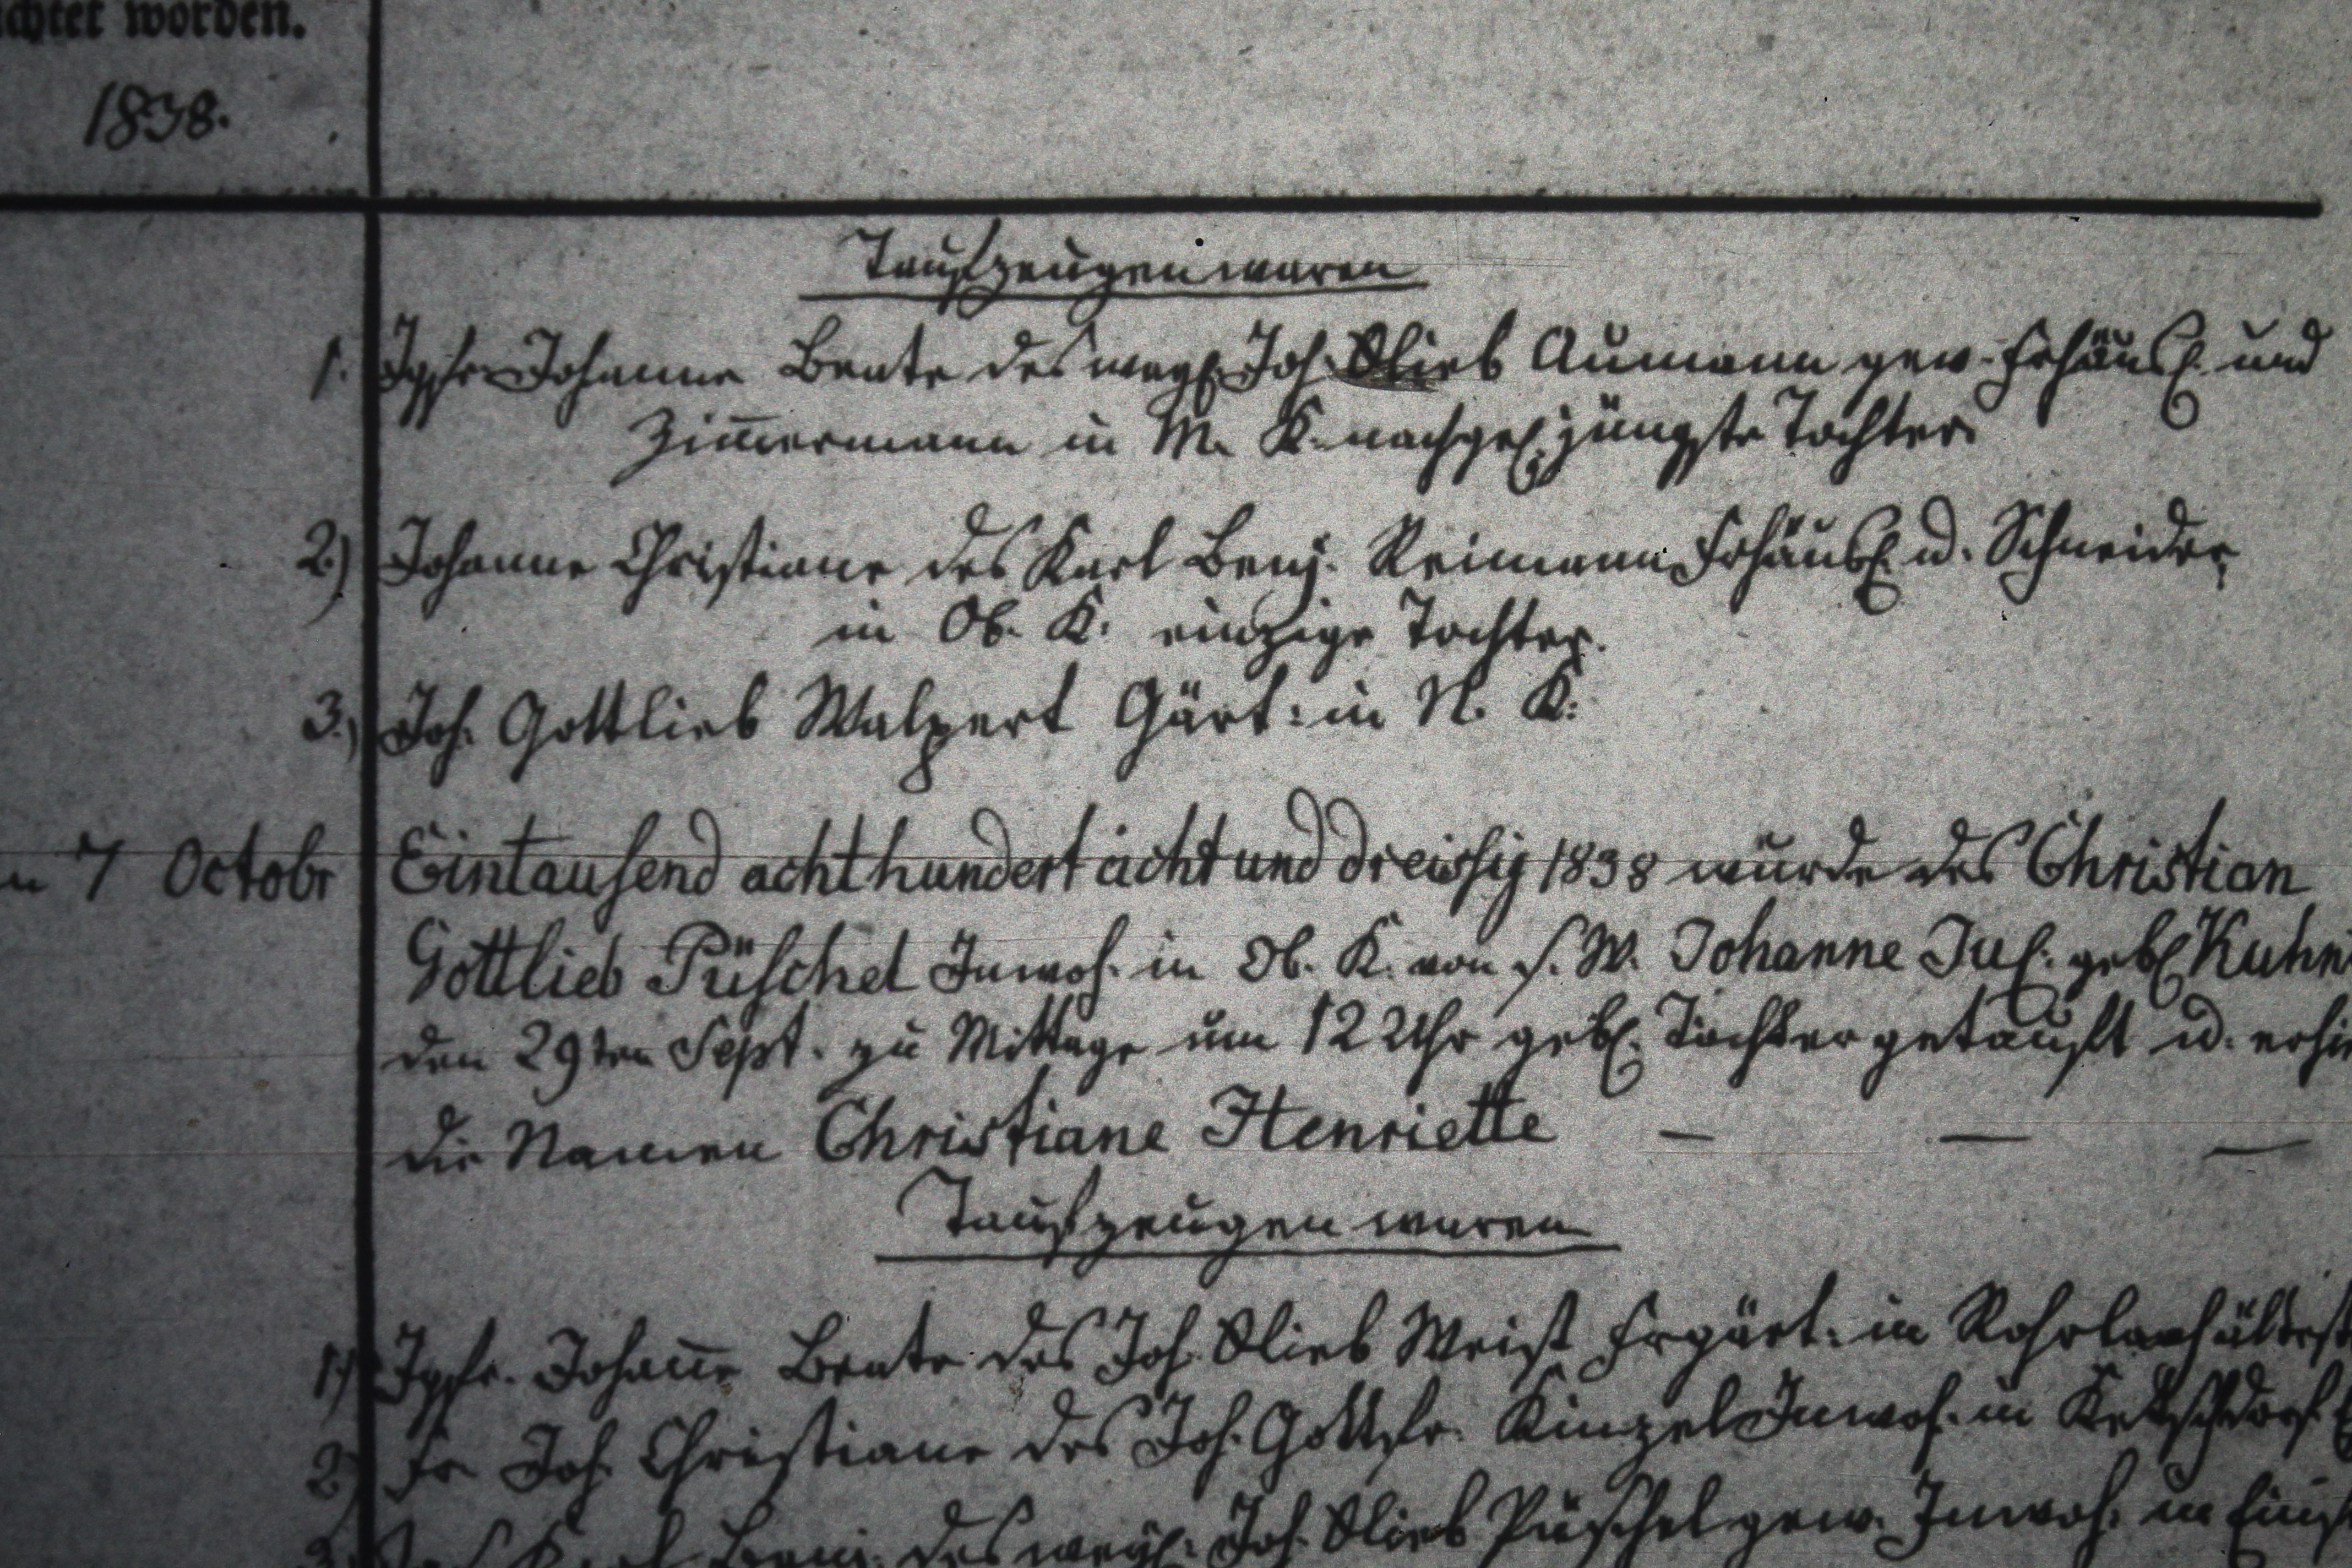 worden.
1838.
Taufzeugen waren
1. Jgfr. Johanne Beate des weyl. Joh. Glieb Aumann gew. Frhäusl. und
Zim̅ermann in M. K. nachgel. jüngste Tochter
2.) Johanne Christiane des Karl Benj. Reimann Frhäusl. u. Schneider
in Ob. K. einzige Tochter.
3.) Joh. Gottlieb Walpert Gärt: in N. K:
7 Octobr Eintausend achthundert acht und dreissig 1838 wurde des Christian
Gottlieb Püschel Inwoh. in Ob. K. von s. W. Johanne Jul. geb. Kuhn
den 29ten Sept. zu Mittage um 12 Uhr geb. Tochter getauft u.
die Namen Christiane Henriette — — —
Taufzeugen waren
1.) Jgfr. Johan̅e Beate des Joh. Glieb Weist Frgärt: in Rohrlach
2.) Fr Joh. Christiane des Joh. Gottfr. Kinzel Inwoh. in Ketschdorf
3. Karl Benj. des weyl. Joh. Glieb Püschel gew. Inwoh. in